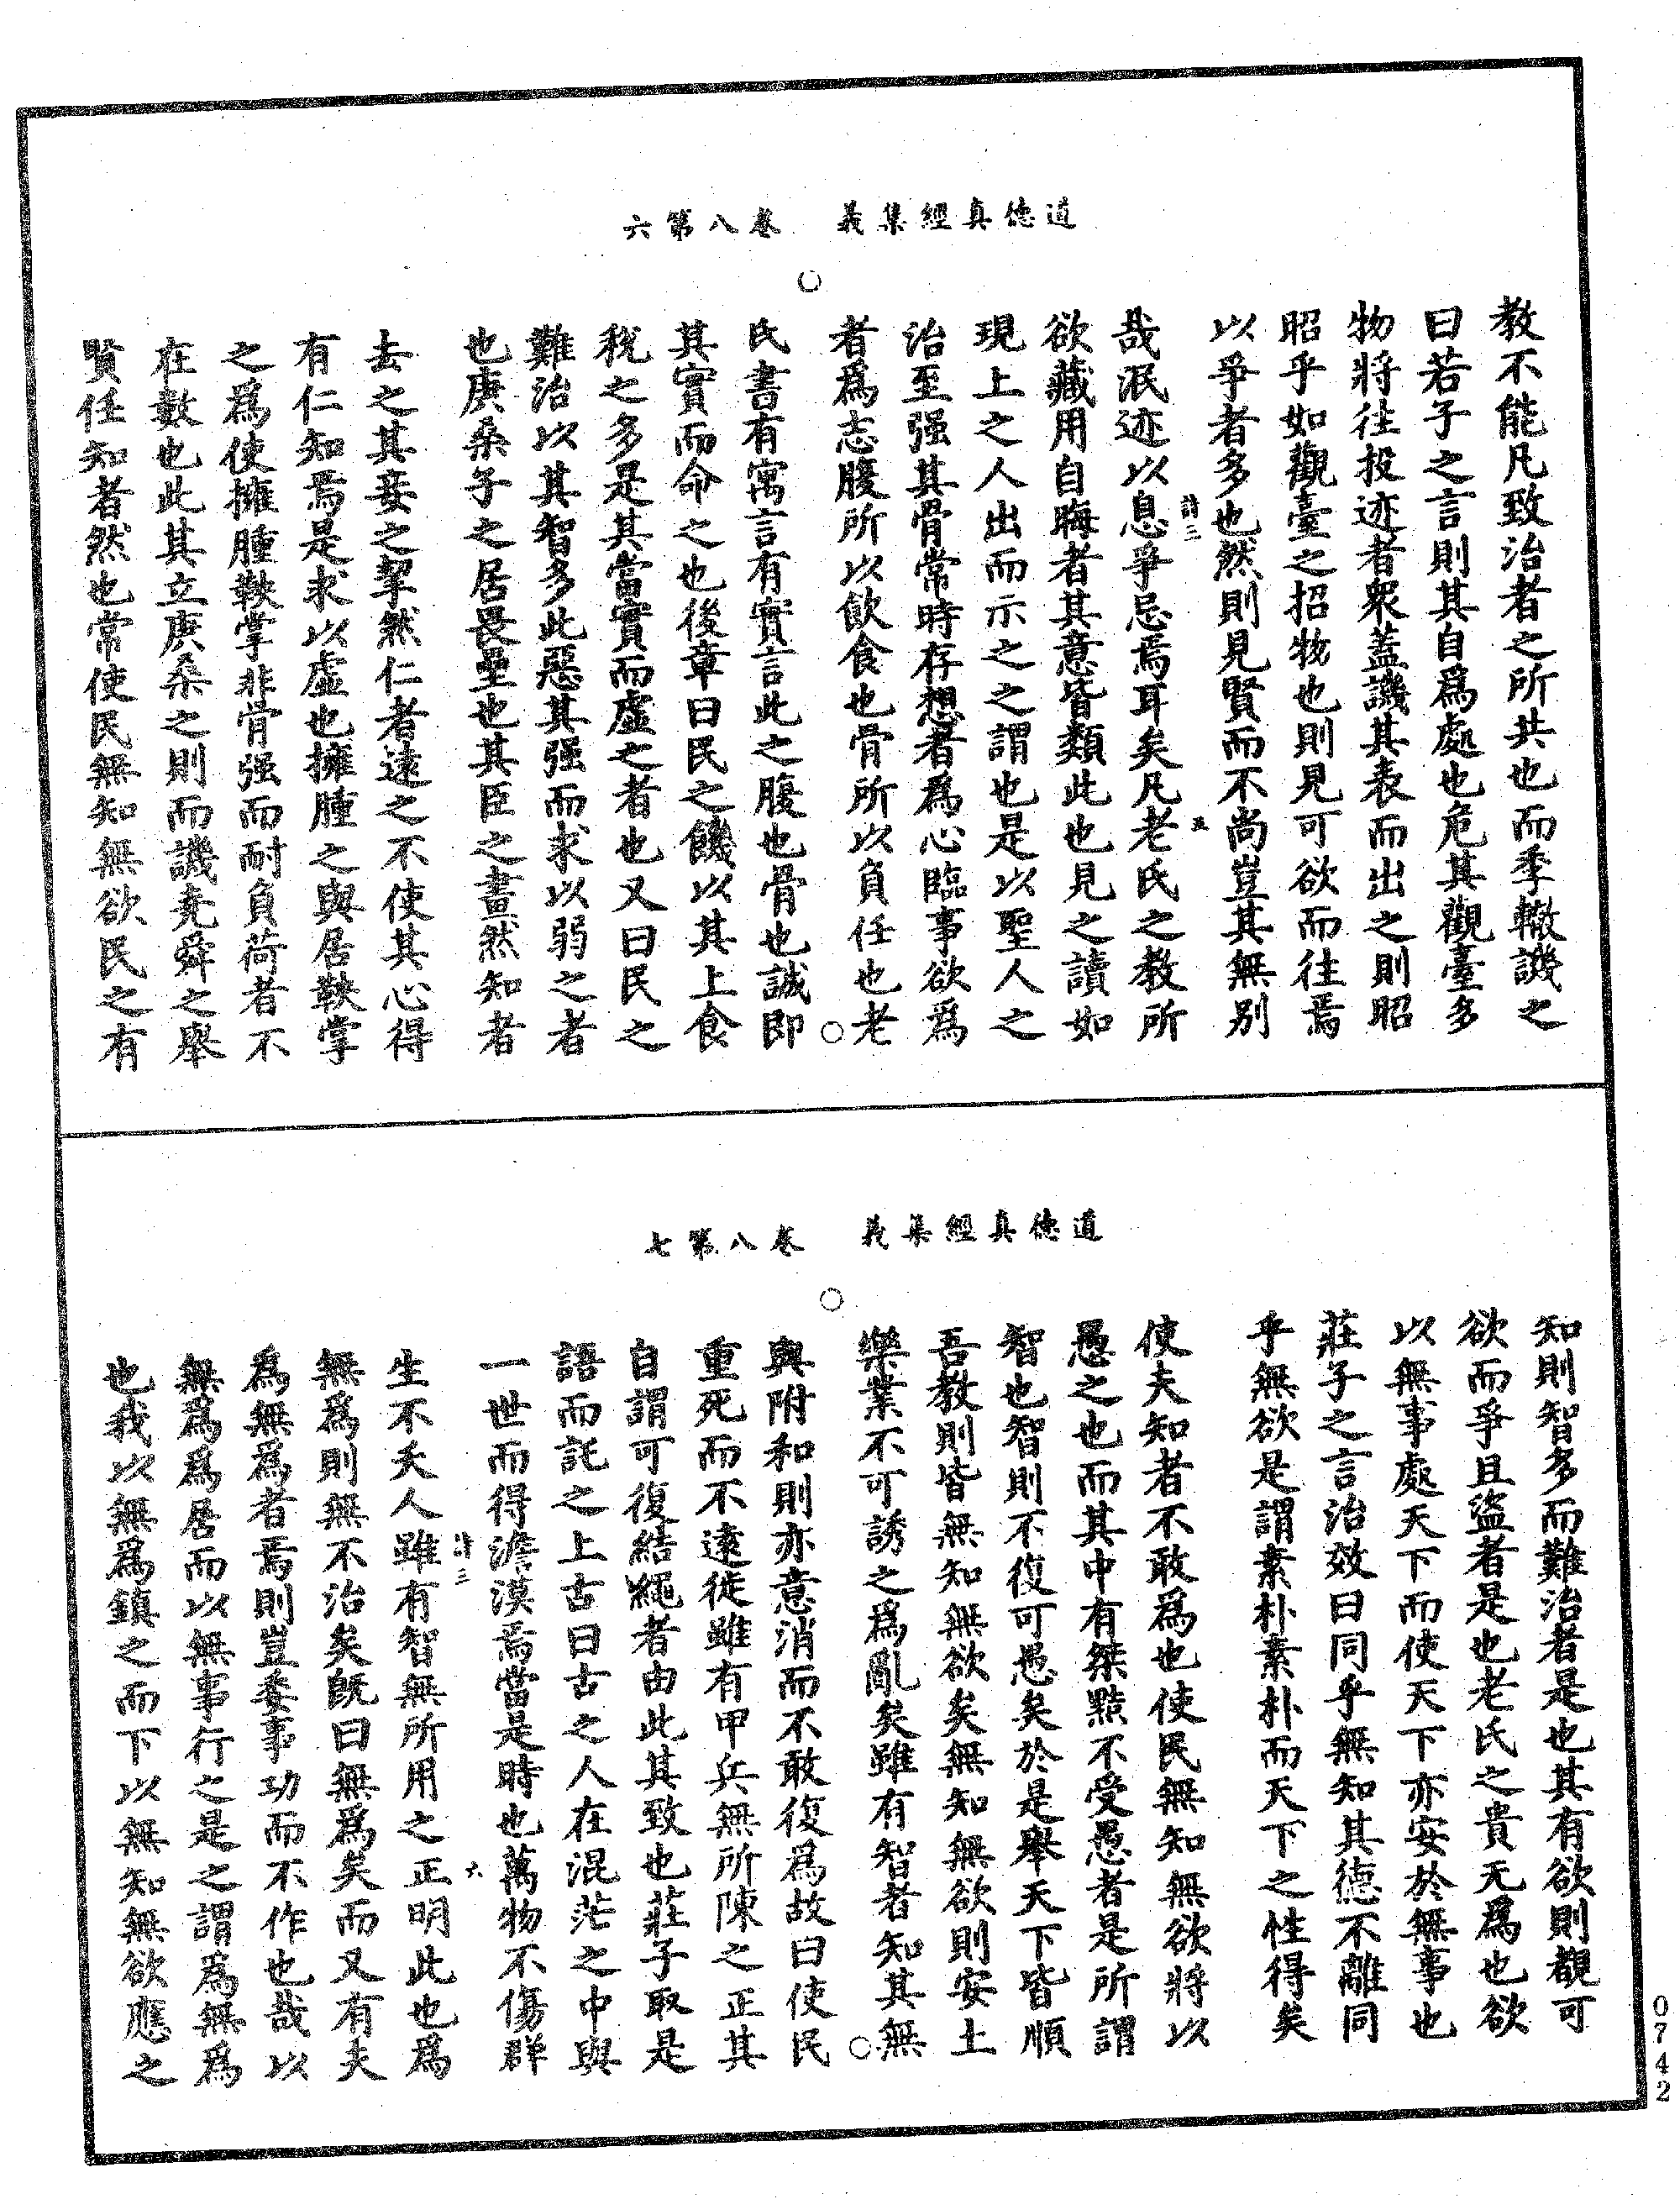 道德真經集義　卷八第六
教不能凡致治者之所共也而季轍譏之
曰若子之言則其自爲處也危其觀臺多
物將往投迹者衆蓋譏其表而出之則昭
昭乎如觀臺之招物也則見可欲而往焉
以爭者多也然則見賢而不尚豈其無別
詩三
五
哉泯迹以息爭忌焉耳矣凡老氏之教所
欲藏用自晦者其意皆類此也見之讀如
現上之人出而示之之謂也是以聖人之
治至强其骨常時存想者爲心臨事欲爲
者爲志腹所以飲食也骨所以負任也老
氏書有寓言有實言此之腹也骨也誠即
其實而命之也後章曰民之饑以其上食
稅之多是其當實而虛之者也又曰民之
難治以其智多此惡其强而求以弱之者
也庚桑子之居畏壘也其臣之畫然知者
去之其妾之挈然仁者遠之不使其心得
有仁知焉是求以虛也擁腫之與居鞅掌
之爲使擁腫鞅掌非骨强而耐負荷者不
在數也此其立庚桑之則而譏堯舜之舉
賢任知者然也常使民無知無欲民之有
道德真經集義　卷八第七
知則智多而難治者是也其有欲則覩可
欲而爭且盜者是也老氏之貴无爲也欲
以無事處天下而使天下亦安於無事也
莊子之言治效曰同乎無知其德不離同
乎無欲是謂素朴素朴而天下之性得矣
使夫知者不敢爲也使民無知無欲將以
愚之也而其中有桀黠不受愚者是所謂
智也智則不復可愚矣於是舉天下皆順
吾教則皆無知無欲矣無知無欲則安土
樂業不可誘之爲亂矣雖有智者知其無
與附和則亦意消而不敢復爲故曰使民
重死而不遠徙雖有甲兵無所陳之正其
自謂可復結繩者由此其致也莊子取是
語而託之上古曰古之人在混茫之中與
一世而得澹漠焉當是時也萬物不傷群
詩三
六
生不夭人雖有智無所用之正明此也爲
無爲則無不治矣旣曰無爲矣而又有夫
爲無爲者焉則豈委事功而不作也哉以
無爲爲居而以無事行之是之謂爲無爲
也我以無爲鎮之而下以無知無欲應之
0742